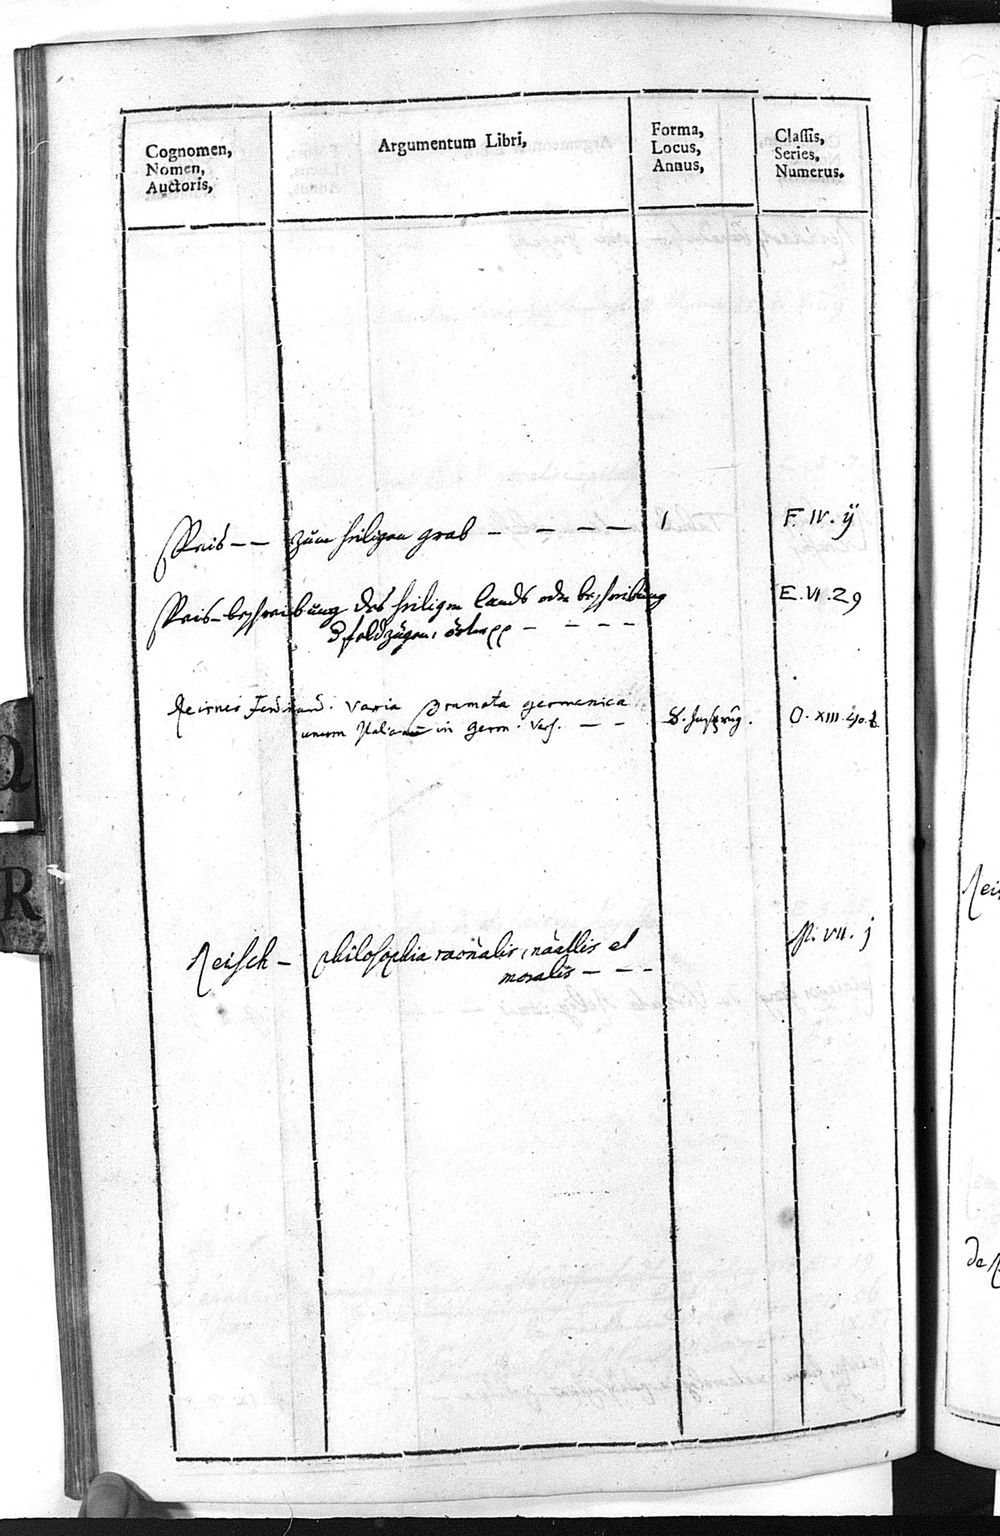 Cognomen,
Nomen,
Auctoris,
Argumentum Libri,
Forma,
Locus,
Annus,
Classis,
Series,
Numerus.
Reis — — zum heiligen grab — — — — 1 F. IV. ij
Reis-beschreibung des heiligen lands oder beschreibung E. VI. 29
feldzügen, — — — —
Ferdinand. Varia Dramata germanica
unum in Germ. Vers. — — 8. O. XIII.
Reisch — philosophia raönalis, näallis et VII. j
moralis — — —
Q
R
Rei
de R